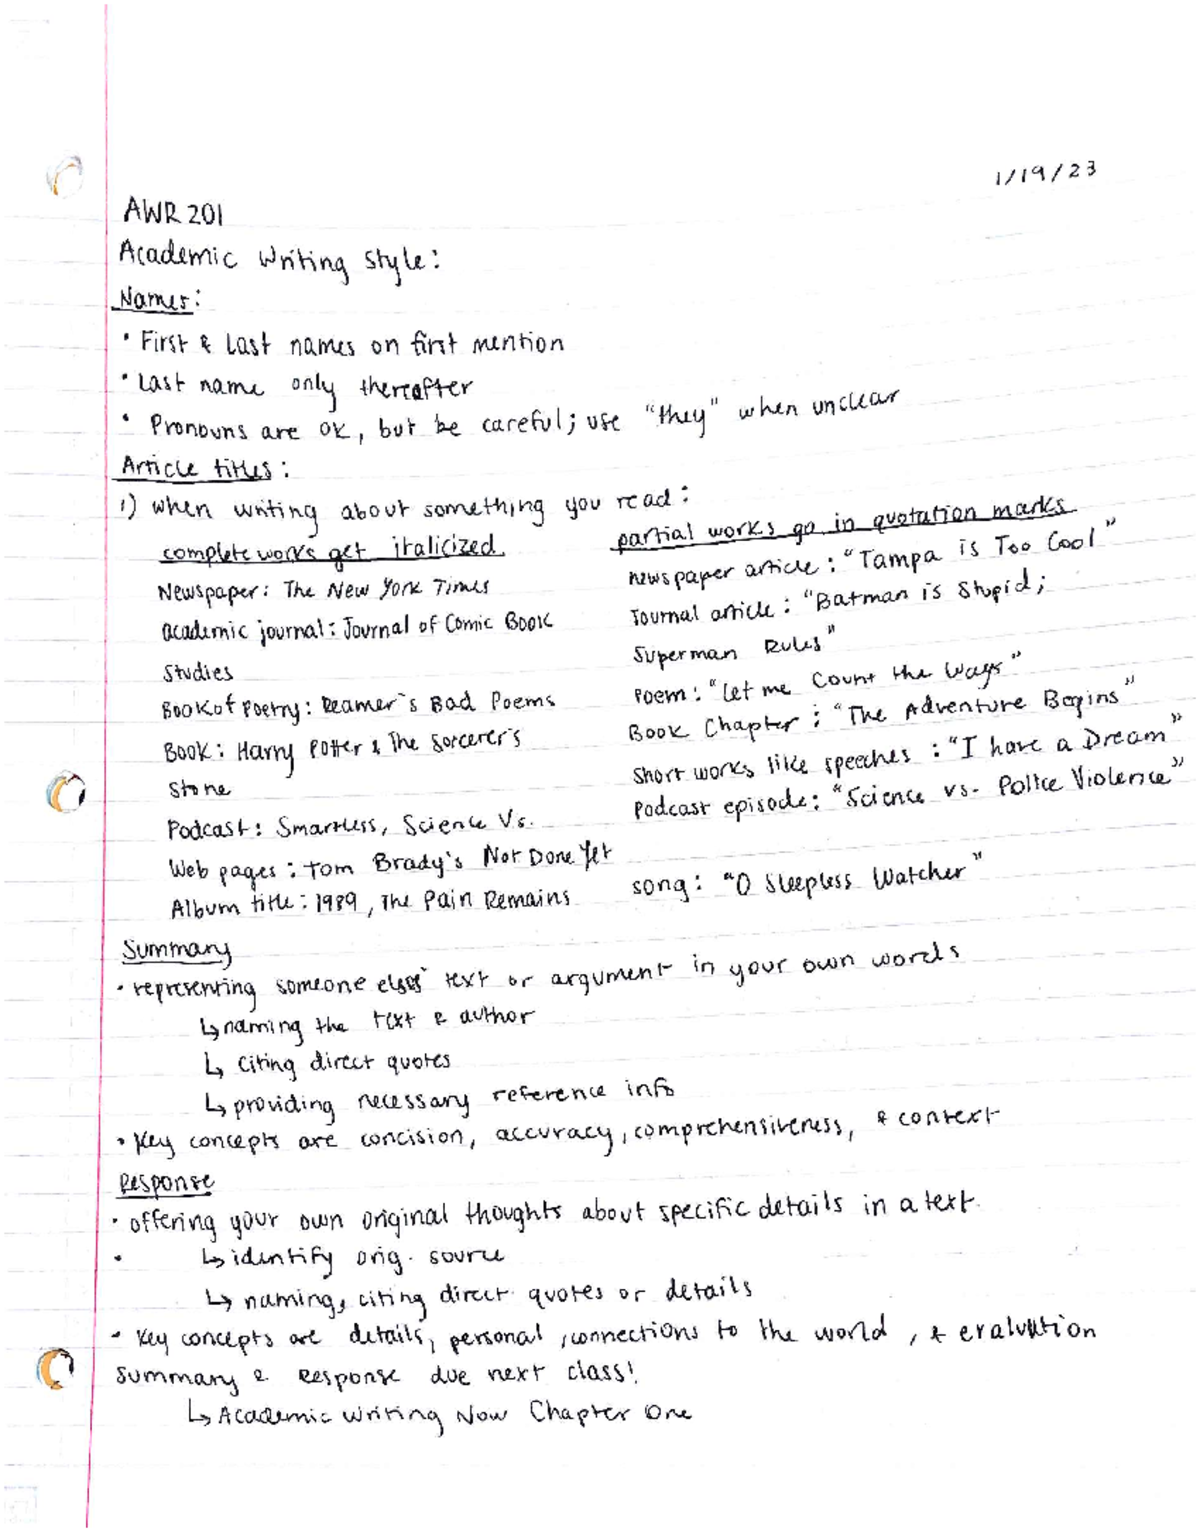 1/19/23
AWR 201
Academic Writing Style:
Names:
• First & Last names on first mention
• Last name only thereafter
• Pronouns are ok, but be careful; use "they" when unclear
Article titles:
1) when writing about something you read:
complete works get italicized
Newspaper: The New York Times
academic journal: Journal of Comic Book
Studies
Book of Poetry: Reamer's Bad Poems
Book: Harry Potter & The Sorcerer's
Stone
Podcast: Smartless, Science Vs.
Web pages: Tom Brady's Not Done Yet
Album title: 1989, The Pain Remains
partial works go in quotation marks
newspaper article: "Tampa is Too Cool"
Journal article: "Batman is Stupid;
Superman Rules"
Poem: "Let me Count the Ways"
Book Chapter: "The Adventure Begins"
Short works like speeches: "I have a Dream"
Podcast episode: "Science vs. Police Violence"
song: "O Sleepless Watcher"
Summary
• representing someone text or argument in your own words
↳ naming the text & author
↳ citing direct quotes
↳ providing necessary reference info
• Key concepts are concision, accuracy, comprehensiveness, & context
Response
• offering your own original thoughts about specific details in a text.
• ↳ identify orig. source
↳ naming, citing direct quotes or details
• Key concepts are details, personal, connections to the world, & evaluation
Summary & Response due next class!
↳ Academic Writing Now Chapter One